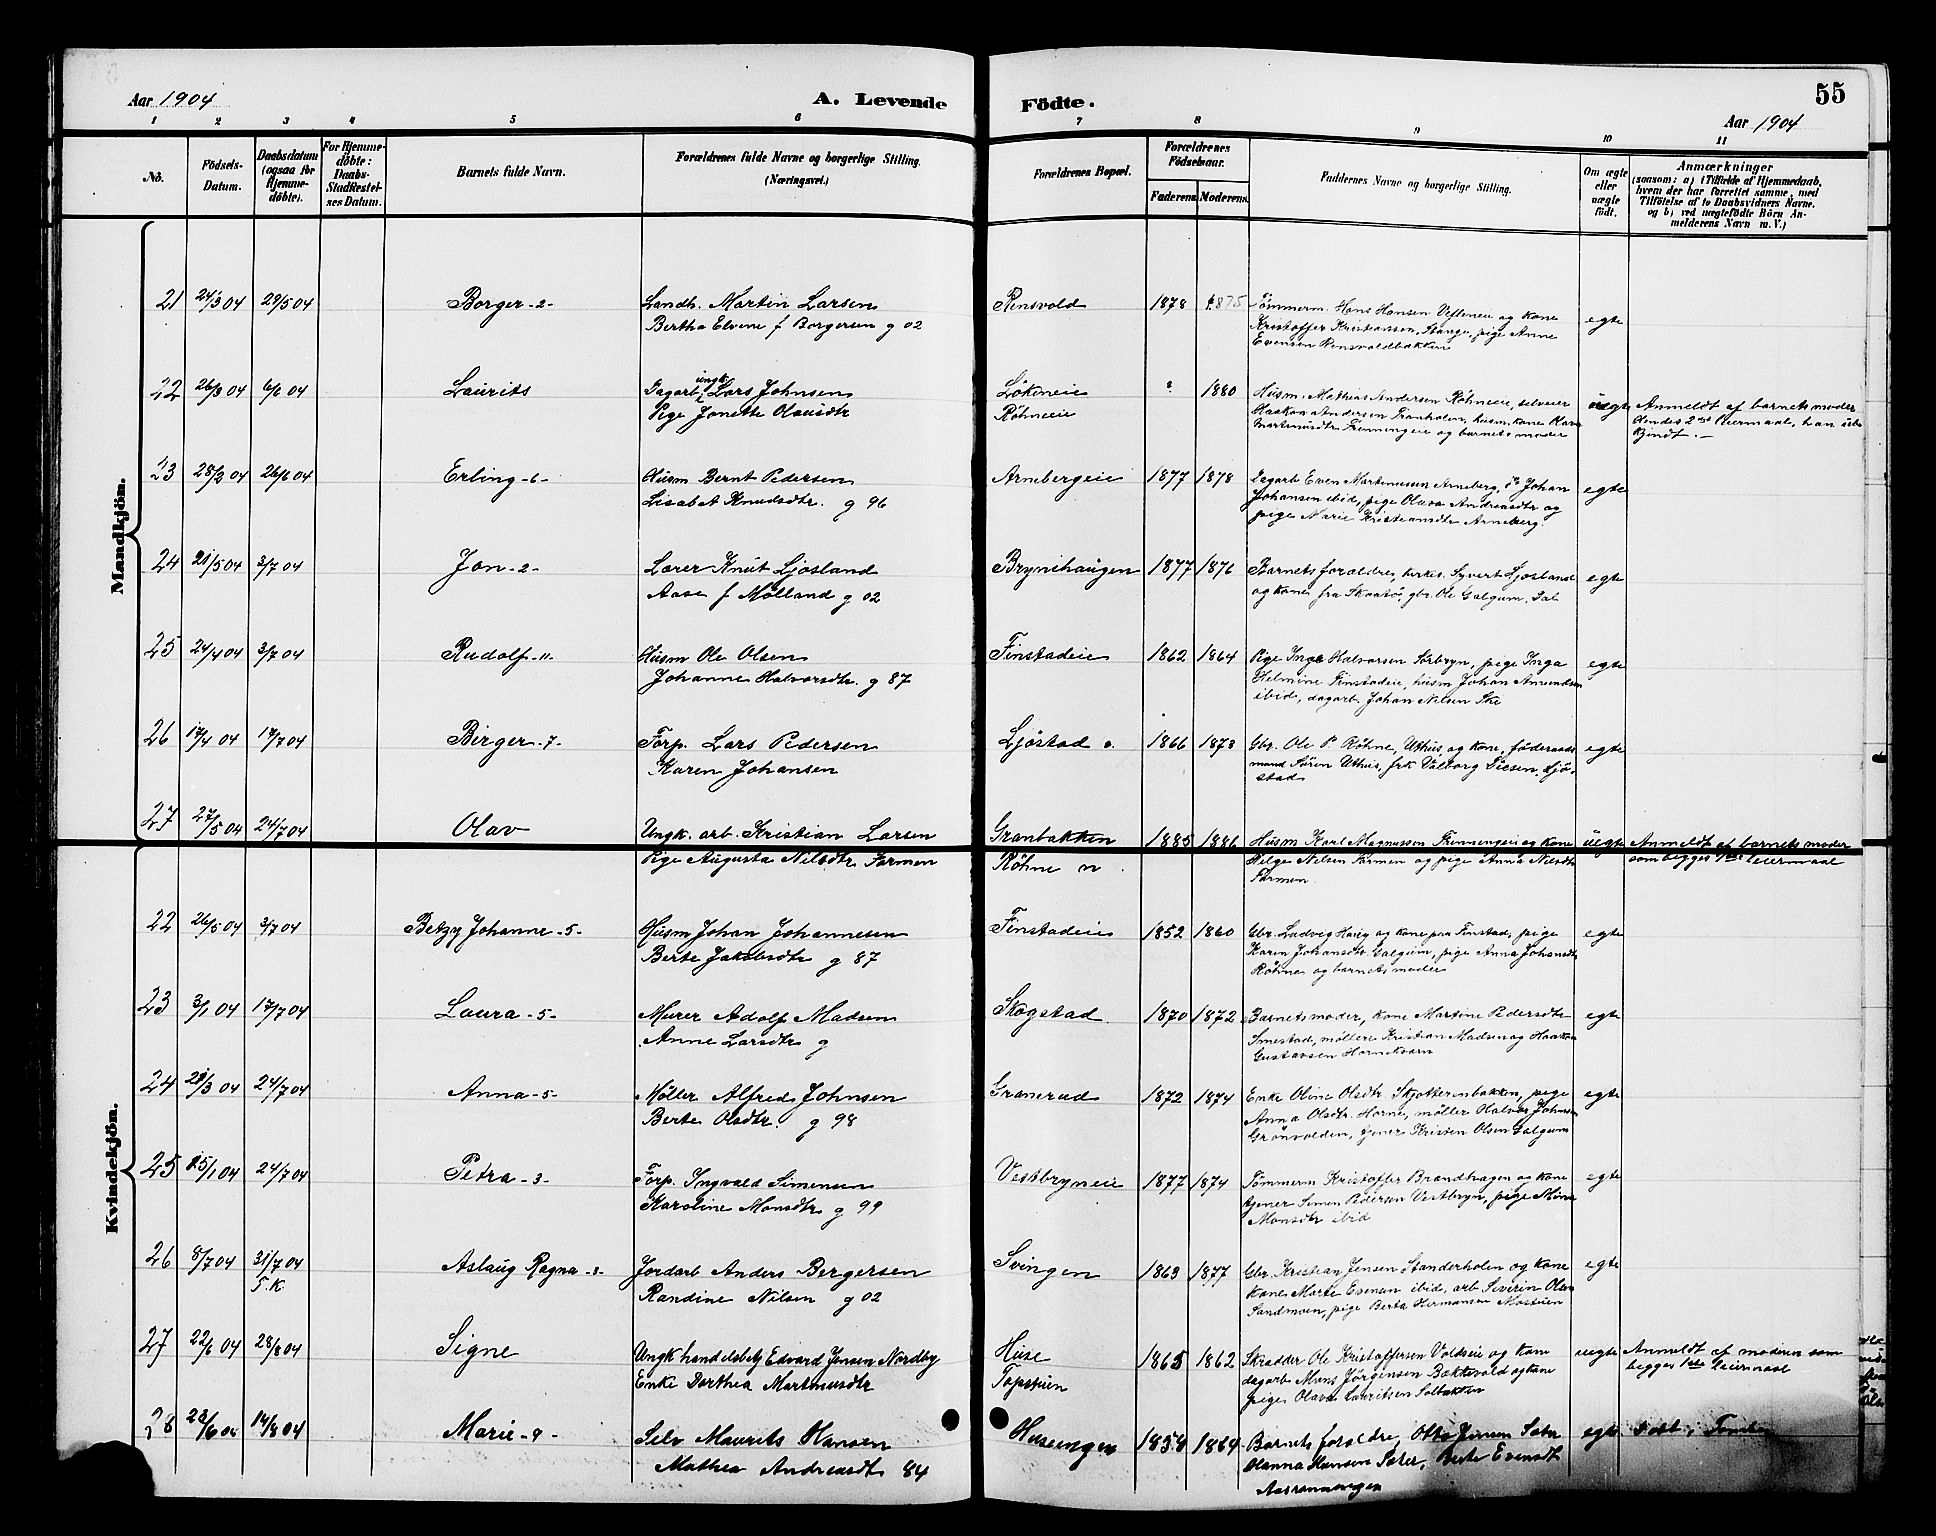 Aar 1904
A. Levende
Födte.
55
Aar 1904
1 2 3 4 5 6 7 8 9 10 11
No.
Födsels-Datum.
Daabsdatum (ogsaa for Hjemmedøbte).
For Hjemmedøbte: Daabs-Stadfæstelses Datum.
Barnets fulde Navn.
Forældrenes fulde Navne og borgerlige Stilling.
(Næringsvei.)
Forældrenes Bopæl.
Forældrenes Födselsaar.
Faderens Moderens
Faddernes Navne og borgerlige Stilling.
Om ægte eller uægte født.
Anmærkninger
(saasom: a) i Tilfælde af Hjemmedaab,
hvem der har forrettet samme, med
Tilföielse af to Daabsvidners Navne.
og b) ved uægtefödte Börn An-
melderens Navn m. V.)
Mandkjön.
21 24/3 04 29/5 04 Borger -2- Landh. Martin Larsen Rensvold 1878 1875 Tømmerm. Hans Hansen Vesteneie og kone
Bertha Elvine f Borgersen g 02 Kristoffer Kristiansen, Stange, pige Anne egte
Evensen Rensvoldbakken
22 26/3 04 6/6 04 Laurits Dagarb. ungk Lars Johnsen Løkeneie ? 1880 Husm. Mathias Andersen Røhneeie, selveier uegte Anmeldt af barnets moder
Pige Janette Olausdtr Røhneeie Haakon Andersen Franholen, husm. kone Olava hendes 2det leiermaal, han ube
Martinusdtr Frenningeie og barnets moder kjendt. -
23 28/2 04 26/6 04 Erling -6- Husm Bernt Pedersen Arnebergeie 1877 1878 Dagarb Even Martinusen Arneberg, do Johan egte
Lisabet Knudsdtr. g 96 Johansen ibid, pige Olava Andreasdtr og
pige Marie Kristiansdtr Arneberg.
24 21/5 04 3/7 04 Jon -2- Lærer Knut Ljosland Brynihaugen 1877 1876 Barnets forældre, kirkes. Syvert Ljosland egte
Aase f Mølland g 02 og kone fra Skaatø, gbr. Ole Galgum, Dal
25 24/4 04 3/7 04 Rudolf -11- Husm Ole Olsen Finstadeie 1862 1864 Pige Inga Halvorsen Sørbryn, pige Inga egte
Johanne Halvorsdtr. g 87 Helmine Finstadeie, husm Johan Amundsen
ibid, dagarb. Johan Nilsen Ske
26 17/4 04 17/7 04 Birger -7- Forp. Lars Pedersen Ljøstad ø. 1866 1873 Gbr. Ole P. Røhne, Uthus, og kone, føderaads egte
Karen Johansen mand Søren Uthus, frk Valborg Diesen, Ljø-
stad
27 27/5 04 24/7 04 Olav Ungk. arb. Kristian Larsen Granbakken 1885 1886 Husm Karl Magnussen Frenningeie og kone uegte Anmeldt af barnets moder
Pige Augusta Nilsdtr Formen Røhne n Helge Nilsen Formen og pige Anna Nilsdtr som begges 1ste leiermaal
Formen.
Kvindekjön.
22 26/5 04 3/7 04 Betzy Johanne -5- Husm Johan Johannesen Finstadeie 1852 1860 Gbr. Ludvig Haug og kone paa Finstad, pige egte
Berte Jakobsdtr g 87 Karen Johansdtr Galgum, pige Anna Johansdtr
Røhne og barnets moder
23 3/1 04 17/7 04 Laura -5- Murer Adolf Madsen Skogstad 1870 1872 Barnets moder, kone Martine Pedersdtr egte
Anne Larsdtr g Smestad, møllere Kristian Madsen og Haakon
Gustavsen Hornekværn
24 28/3 04 24/7 04 Anna -5- Møller Alfred Johnsen Granerud 1872 1874 Enke Oline Olsdtr Skjotterenbakken, pige egte
Berte Olsdtr. g 98 Anna Olsdtr. Horne, møller Halvor Johnsen
Grønvolden, tjener Kristen Olsen Galgum
25 15/1 04 24/7 04 Petra -3- Forp. Ingvald Simensen Vestbryneie 1877 1874 Tømmerm Kristoffer Brandhagen og kone egte
Karoline Monsdtr g 99 tjener Simen Pedersen Vestbryn, pige Mina
Monsdtr ibid
26 8/7 04 31/7 04 Aslaug Ragna -3- Jordarb Anders Bergersen Svingen 1863 1877 Gbr. Kristian Jensen Standerholen og kone egte
T.K Randine Nilsen g 02 kone Marte Evensen ibid, arb Severin Olsen
Sandmoen, pige Berta Hermansen Mostuen
27 22/6 04 28/8 04 Signe Ungk handelsbetj Edvard Jensen Nordby Huse 1865 1862 Skrædder Ole Kristoffersen Voldseie og kone uegte Anmeldt af moderen som
Enke Dorthea Martinusdtr Topstuen dagarb. Mons Jørgensen Bakkevold og kone begges 1ste leiermaal
pige Olava Lauritsen Solbakken
28 23/6 04 14/8 04 Marie -9- Selv Maurits Hansen Huseengen 1858 1864 Barnets forældre, Otto Jensen Sæter egte Født i
Mathea Andreasdt 84 Olanna Hansen Sæter, Berte Evensdt